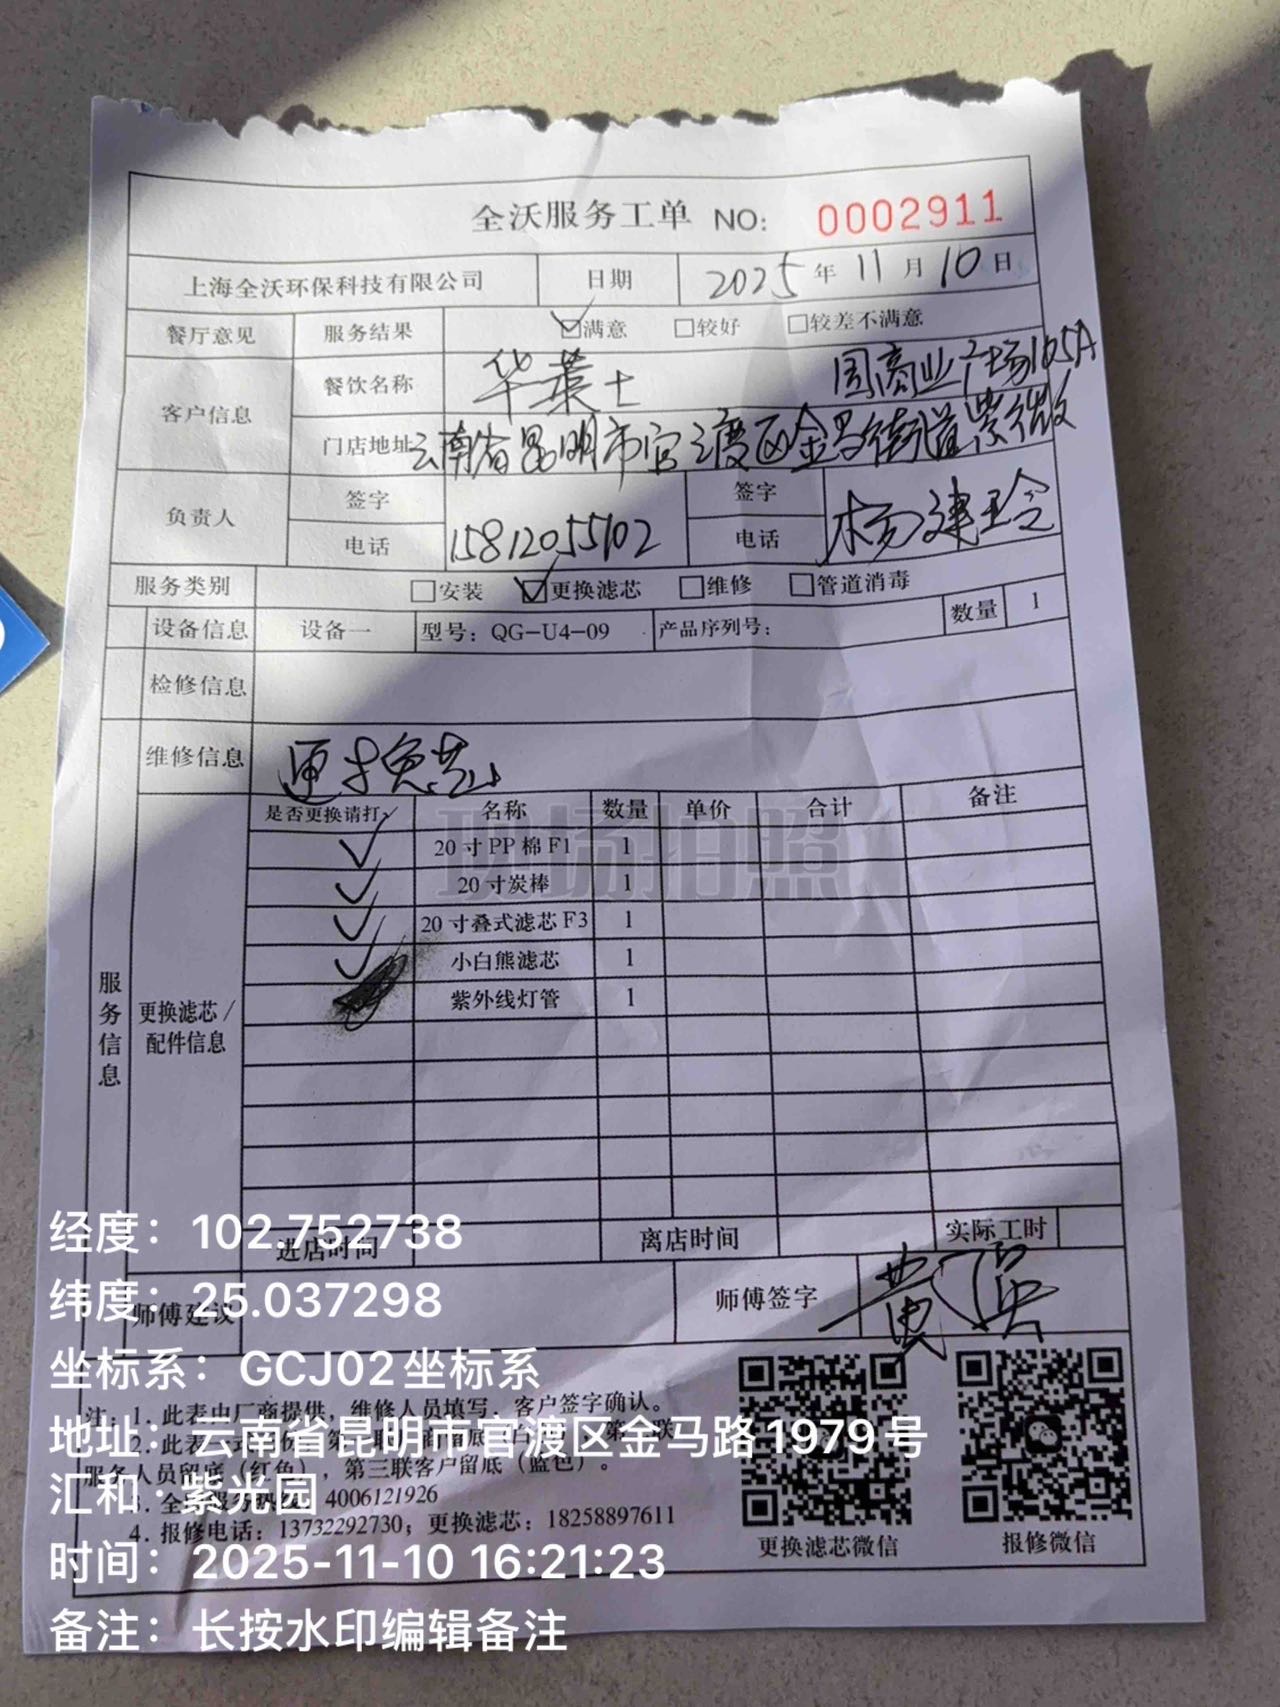 全沃服务工单 NO: 0002911
上海全沃环保科技有限公司 日期 2025 年 11 月 10 日
餐厅意见 服务结果 ☑满意 □较好 □较差不满意
客户信息 餐饮名称 华莱士 园商业广场105A
门店地址 云南省昆明市官渡区金马街道紫微
负责人 签字 签字
电话 15812055102 电话 杨建玲
服务类别 □安装 ☑更换滤芯 □维修 □管道消毒
设备信息 设备一 型号: QG-U4-09 产品序列号: 数量 1
检修信息
维修信息 更换
服务信息
更换滤芯/
配件信息
是否更换请打✓ 名称 数量 单价 合计 备注
✓ 20寸PP棉F1 1
✓ 20寸炭棒 1
✓ 20寸叠式滤芯F3 1
✓ 小白熊滤芯 1
紫外线灯管 1
现场拍照
进店时间 离店时间 实际工时
师傅建议 师傅签字 黄
注: 1. 此表由厂商提供, 维修人员填写, 客户签字确认。
2. 此表
服务人员留底 (红色), 第三联客户留底 (蓝色)。
4006121926
4. 报修电话: 13732292730; 更换滤芯: 18258897611
更换滤芯微信 报修微信
经度: 102.752738
纬度: 25.037298
坐标系: GCJ02坐标系
地址: 云南省昆明市官渡区金马路1979号
汇和·紫光园
时间: 2025-11-10 16:21:23
备注: 长按水印编辑备注